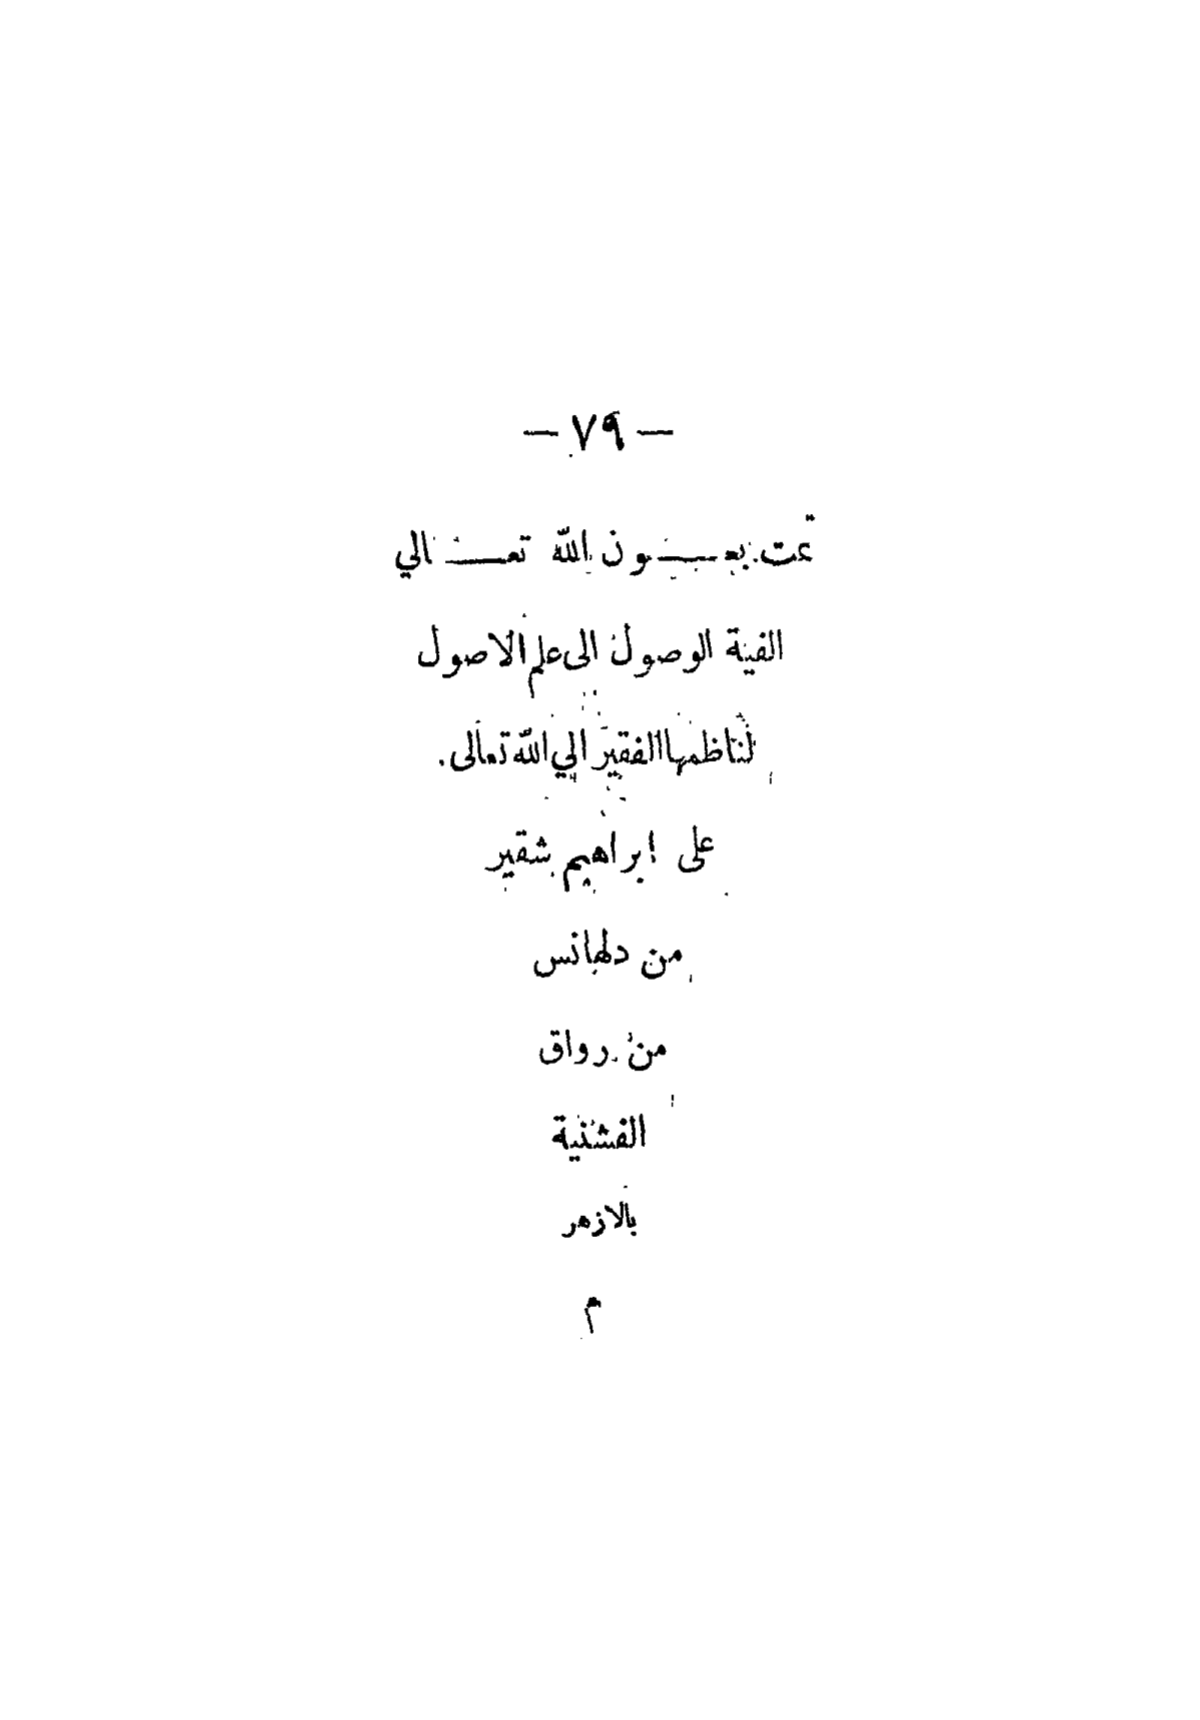 — ٧٩ —
تمت بعون الله تعالي
الفية الوصول الى علم الاصول
لناظمها الفقير الي الله تعالى.
على ابراهيم شقير
من دلهانس
من رواق
الفشنية
بالازهر
م